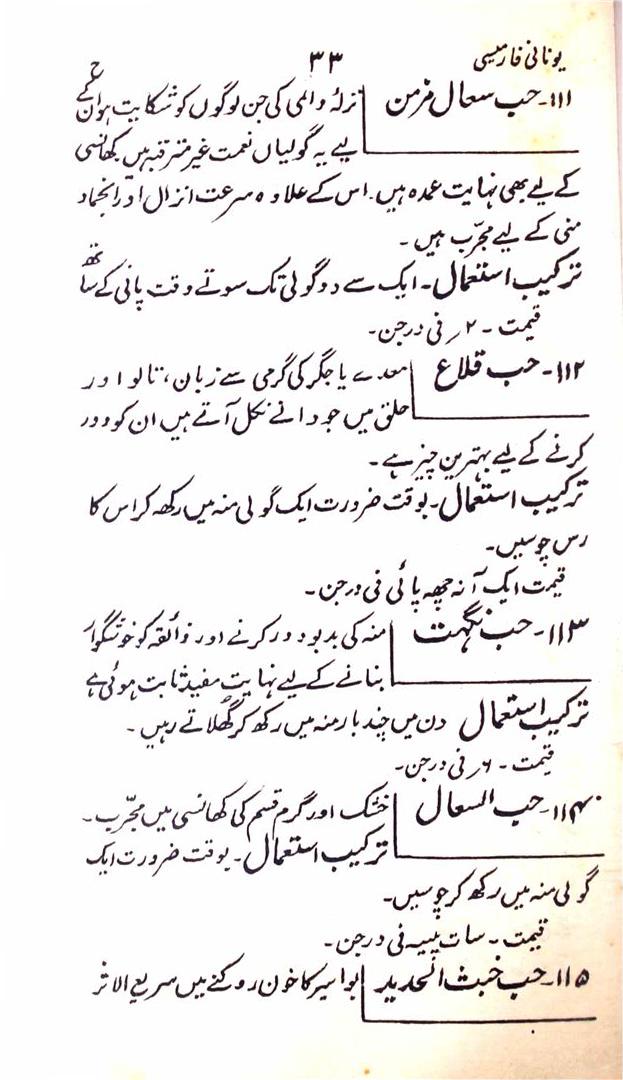 یونانی فارمیسی ۳۳ ح
۱۱۱۔ حب سعال مزمن نزلہٴ دائمی کی جن لوگوں کو شکایت ہو ان کے
لیے یہ گولیاں نعمت غیر مترقبہ ہیں کھانسی
کے لیے بھی نہایت عمدہ ہیں۔ اس کے علاوہ سرعت انزال اور انجماد
منی کے لیے مجرّب ہیں۔
ترکیب استعمال۔ ایک سے دو گولی تک سوتے وقت پانی کے ساتھ
قیمت۔ ۲؍ فی درجن۔
۱۱۲۔ حب قلاع معدے یا جگر کی گرمی سے زبان، تالو اور
حلق میں جو دانے نکل آتے ہیں ان کو دور
کرنے کے لیے بہترین چیز ہے۔
ترکیب استعمال۔ بوقت ضرورت ایک گولی منہ میں رکھ کر اس کا
رس چوسیں۔
قیمت ایک آنہ چھہ پائی فی درجن۔
۱۱۳۔ حب نگہت منہ کی بدبو دور کرنے اور ذائقہ کو خوشگوار
بنانے کے لیے نہایت مفید ثابت ہوئی ہے
ترکیب استعمال دن میں چند بار منہ میں رکھ کر گھلاتے رہیں۔
قیمت۔ ۶؍ فی درجن۔
۱۱۴۔ حب السعال خشک اور گرم قسم کی کھانسی میں مجرّب۔
ترکیب استعمال۔ بوقت ضرورت ایک
گولی منہ میں رکھ کر چوسیں۔
قیمت۔ سات پیسہ فی درجن۔
۱۱۵۔ حب خبث الحدید بواسیر کا خون روکنے میں سریع الاثر